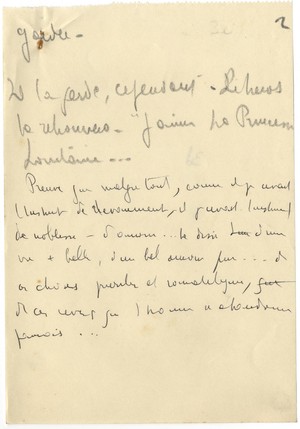 garder -
2
Il la garde, cependant - Le héros
la retrouvera - "J'aime la Princesse
Lointaine...
Preuve que malgré tout, comme il y avait
l'instinct de dévouement, il y avait l'instinct
de noblesse - d'amour... le désir d'une
vie + belle, d'un bel amour pur... de
ces choses profondes et romantiques,
de ces rêves que l'homme n'abandonne
jamais...